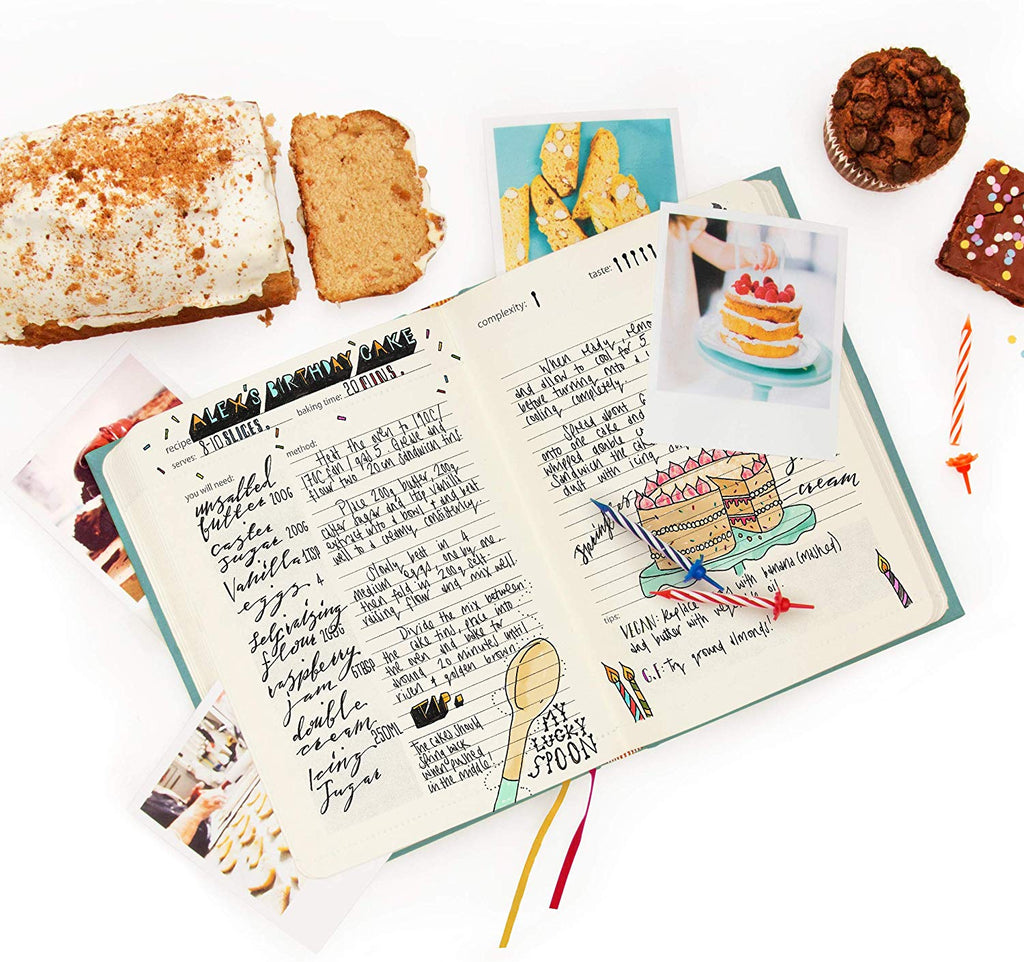 ALEX'S BIRTHDAY CAKE
recipe
serves: 8-10 SLICES.
baking time: 20 MINS.
you will need:
unsalted
butter 200G
caster
sugar 200G
Vanilla 1TSP
eggs 4
self raising
flour 200G
raspberry
jam 6TBSP
double
cream 250ML
Icing
Sugar
method:
Heat the oven to 190C/
170C fan/gas 5. Grease and
flour two 20cm sandwich tins
Place 200g butter, 200g
caster sugar and 1tsp vanilla
extract into a bowl & and beat
well to a creamy consistency.
Slowly beat in 4
medium eggs, one by one
then fold in 200g self
raising flour and mix well.
Divide the mix between
the cake tins, place into
the oven and bake for
around 20 minutes until
risen & golden brown.
TIP:
The cakes should
spring back
when pushed
in the middle!
MY
LUCKY
SPOON
complexity:
taste:
When ready, remo
and allow to cool for 5
before turning
cooling completely.
Spread about
onto one cake and
whipped double
Sandwich the cak
dust with Icing
cream
tips:
VEGAN: Replace with banana (mashed)
and butter with oil.
G.F: Try ground almond!